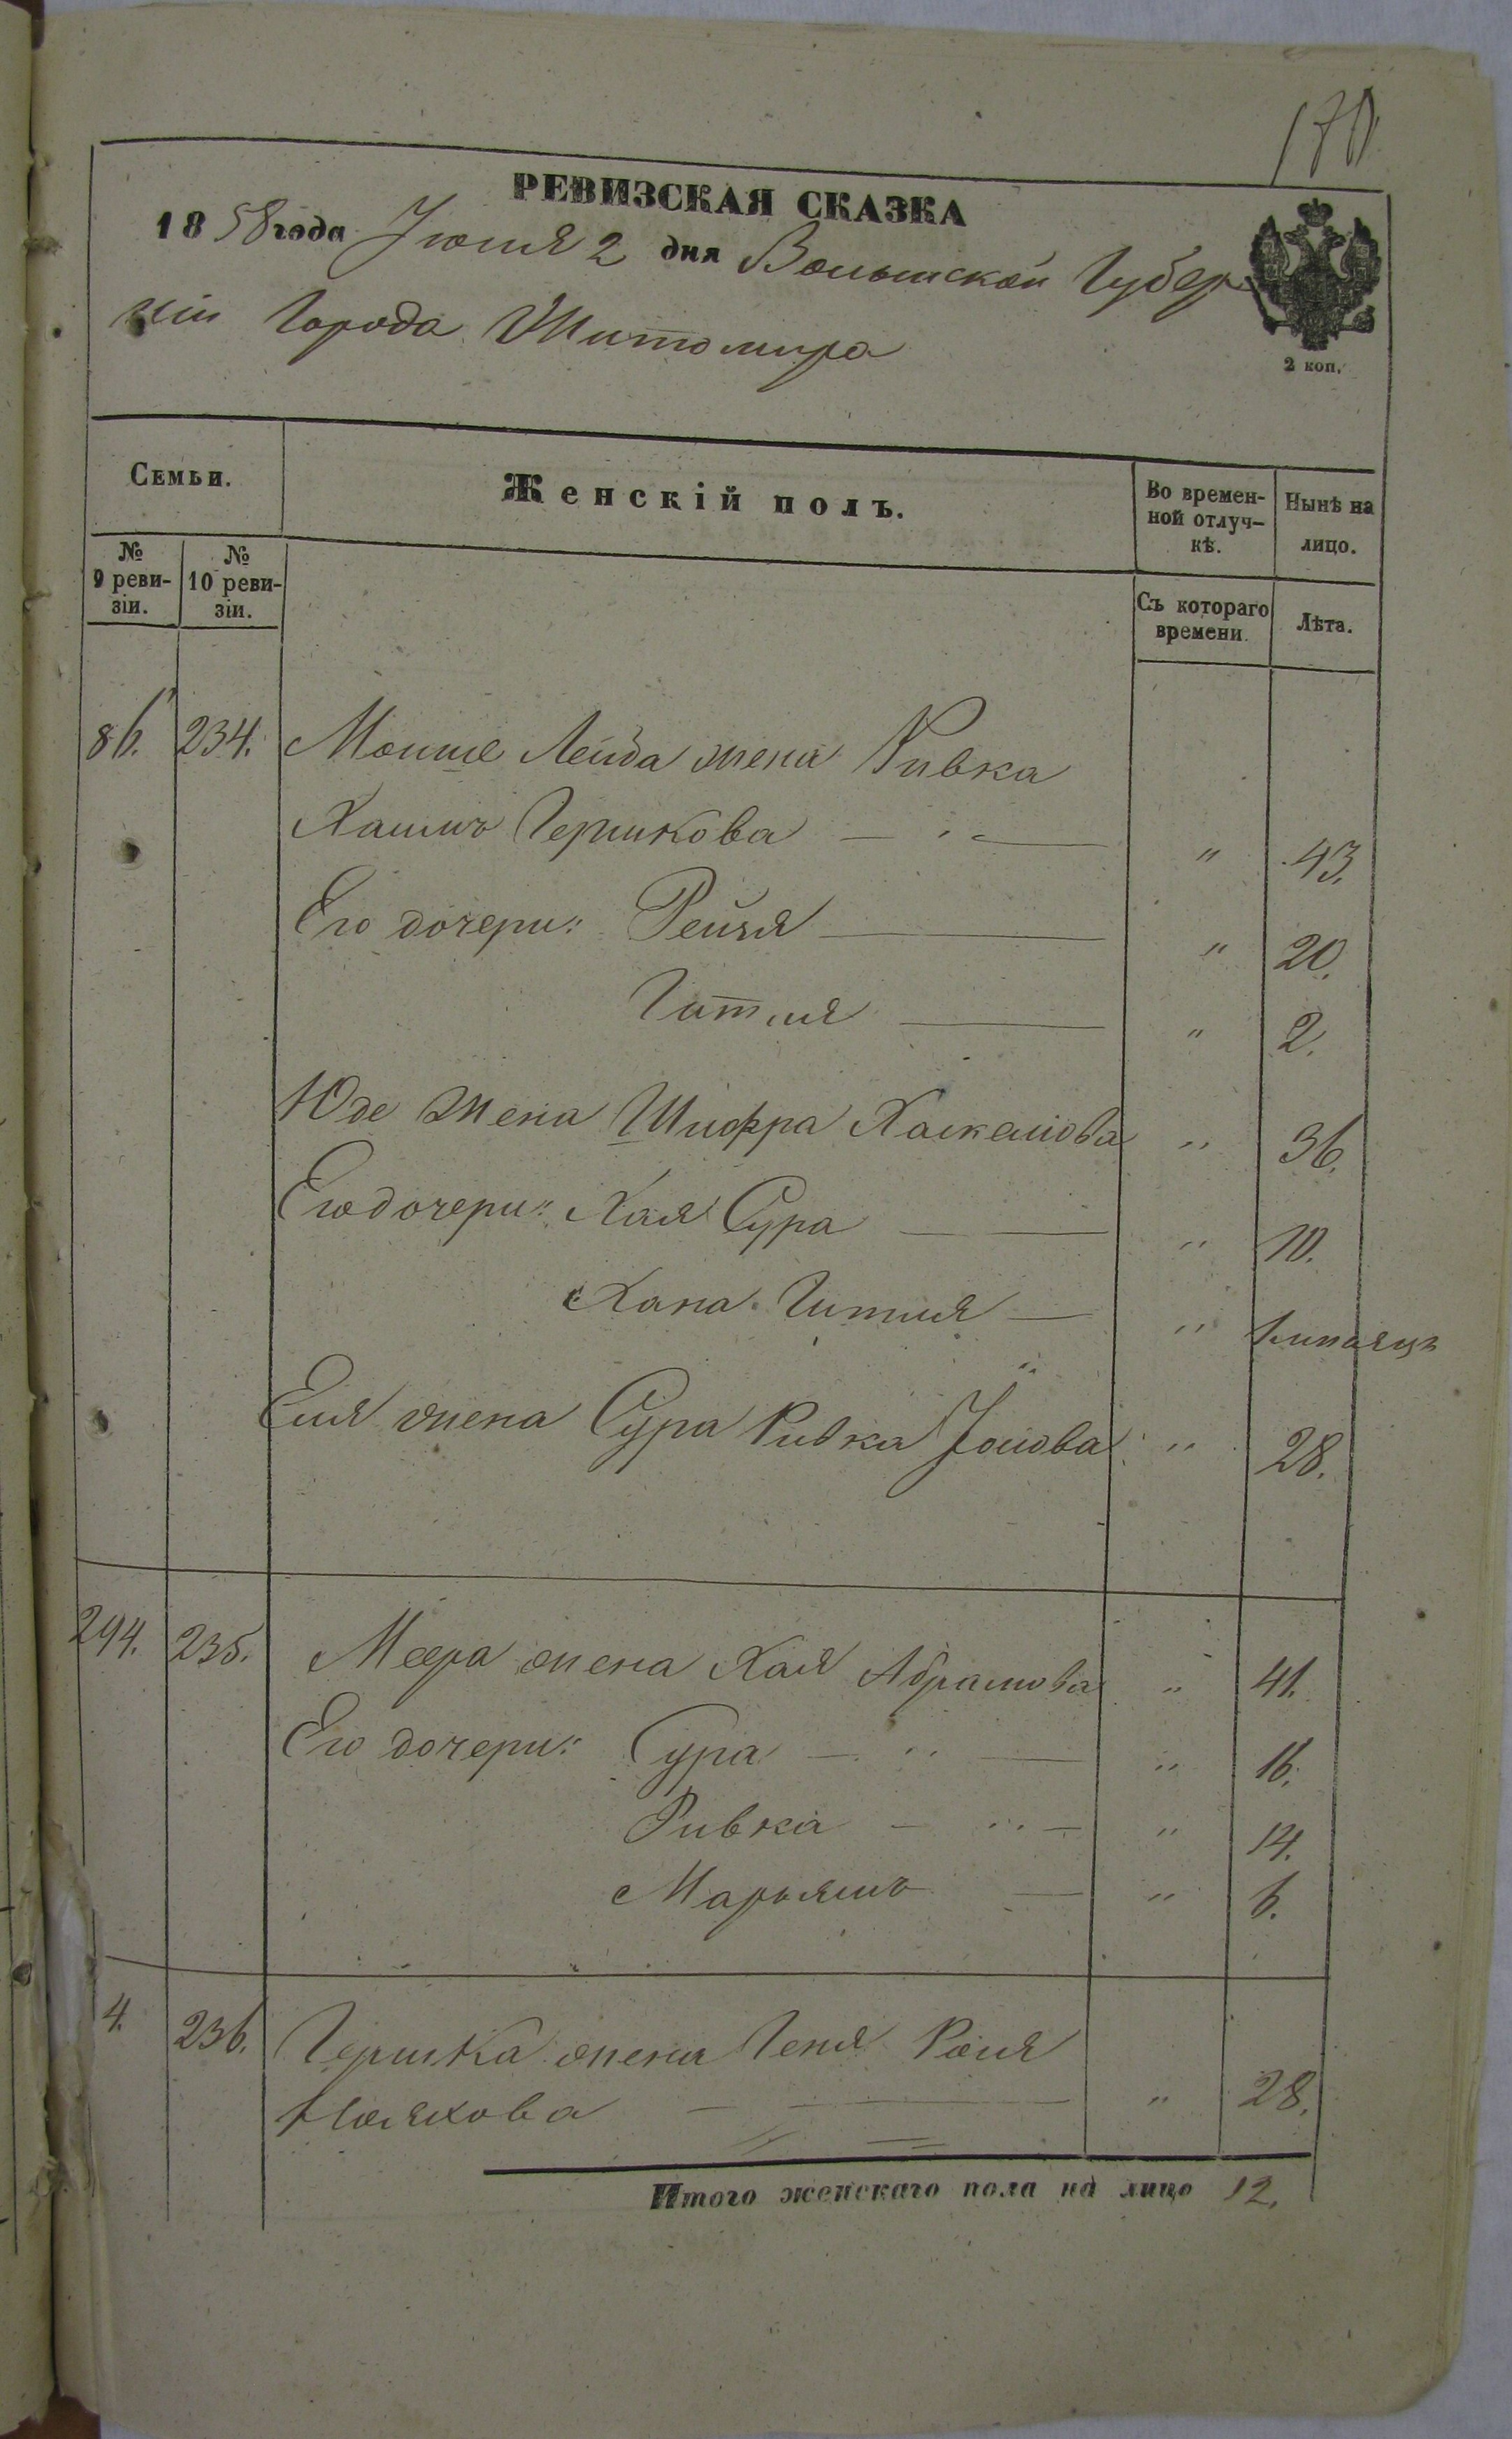 170
РЕВИЗСКАЯ СКАЗКА
1858 года Іюня 2 дня Волынской Губер
ніи Города Житомира
2 коп.
Семьи.
Женскій полъ.
Во времен-
ной отлуч-
кѣ.
Нынѣ на
лицо.
№
9 реви-
зіи.
№
10 реви-
зіи.
Съ котораго
времени.
Лѣта.
86. 234. Мошше Лейба жена Ривка
Гершкова — " 43.
Его дочери: Рейзя — " 20.
Гитля — " 2.
Юде жена Шифра Хаскелiова " 36.
Его дочери: Хая Сура — " 10.
Хана Гитля — "
Еля жена Сура Ривка Іолова " 28.
294. 235. Меера жена Хая Абрамова " 41.
Его дочери: Сура — " 16.
Ривка — " 14.
Марьямъ — " 6.
4. 236. Гершка жена Геня Роля
" 28.
Итого женскаго пола на лицо 12.